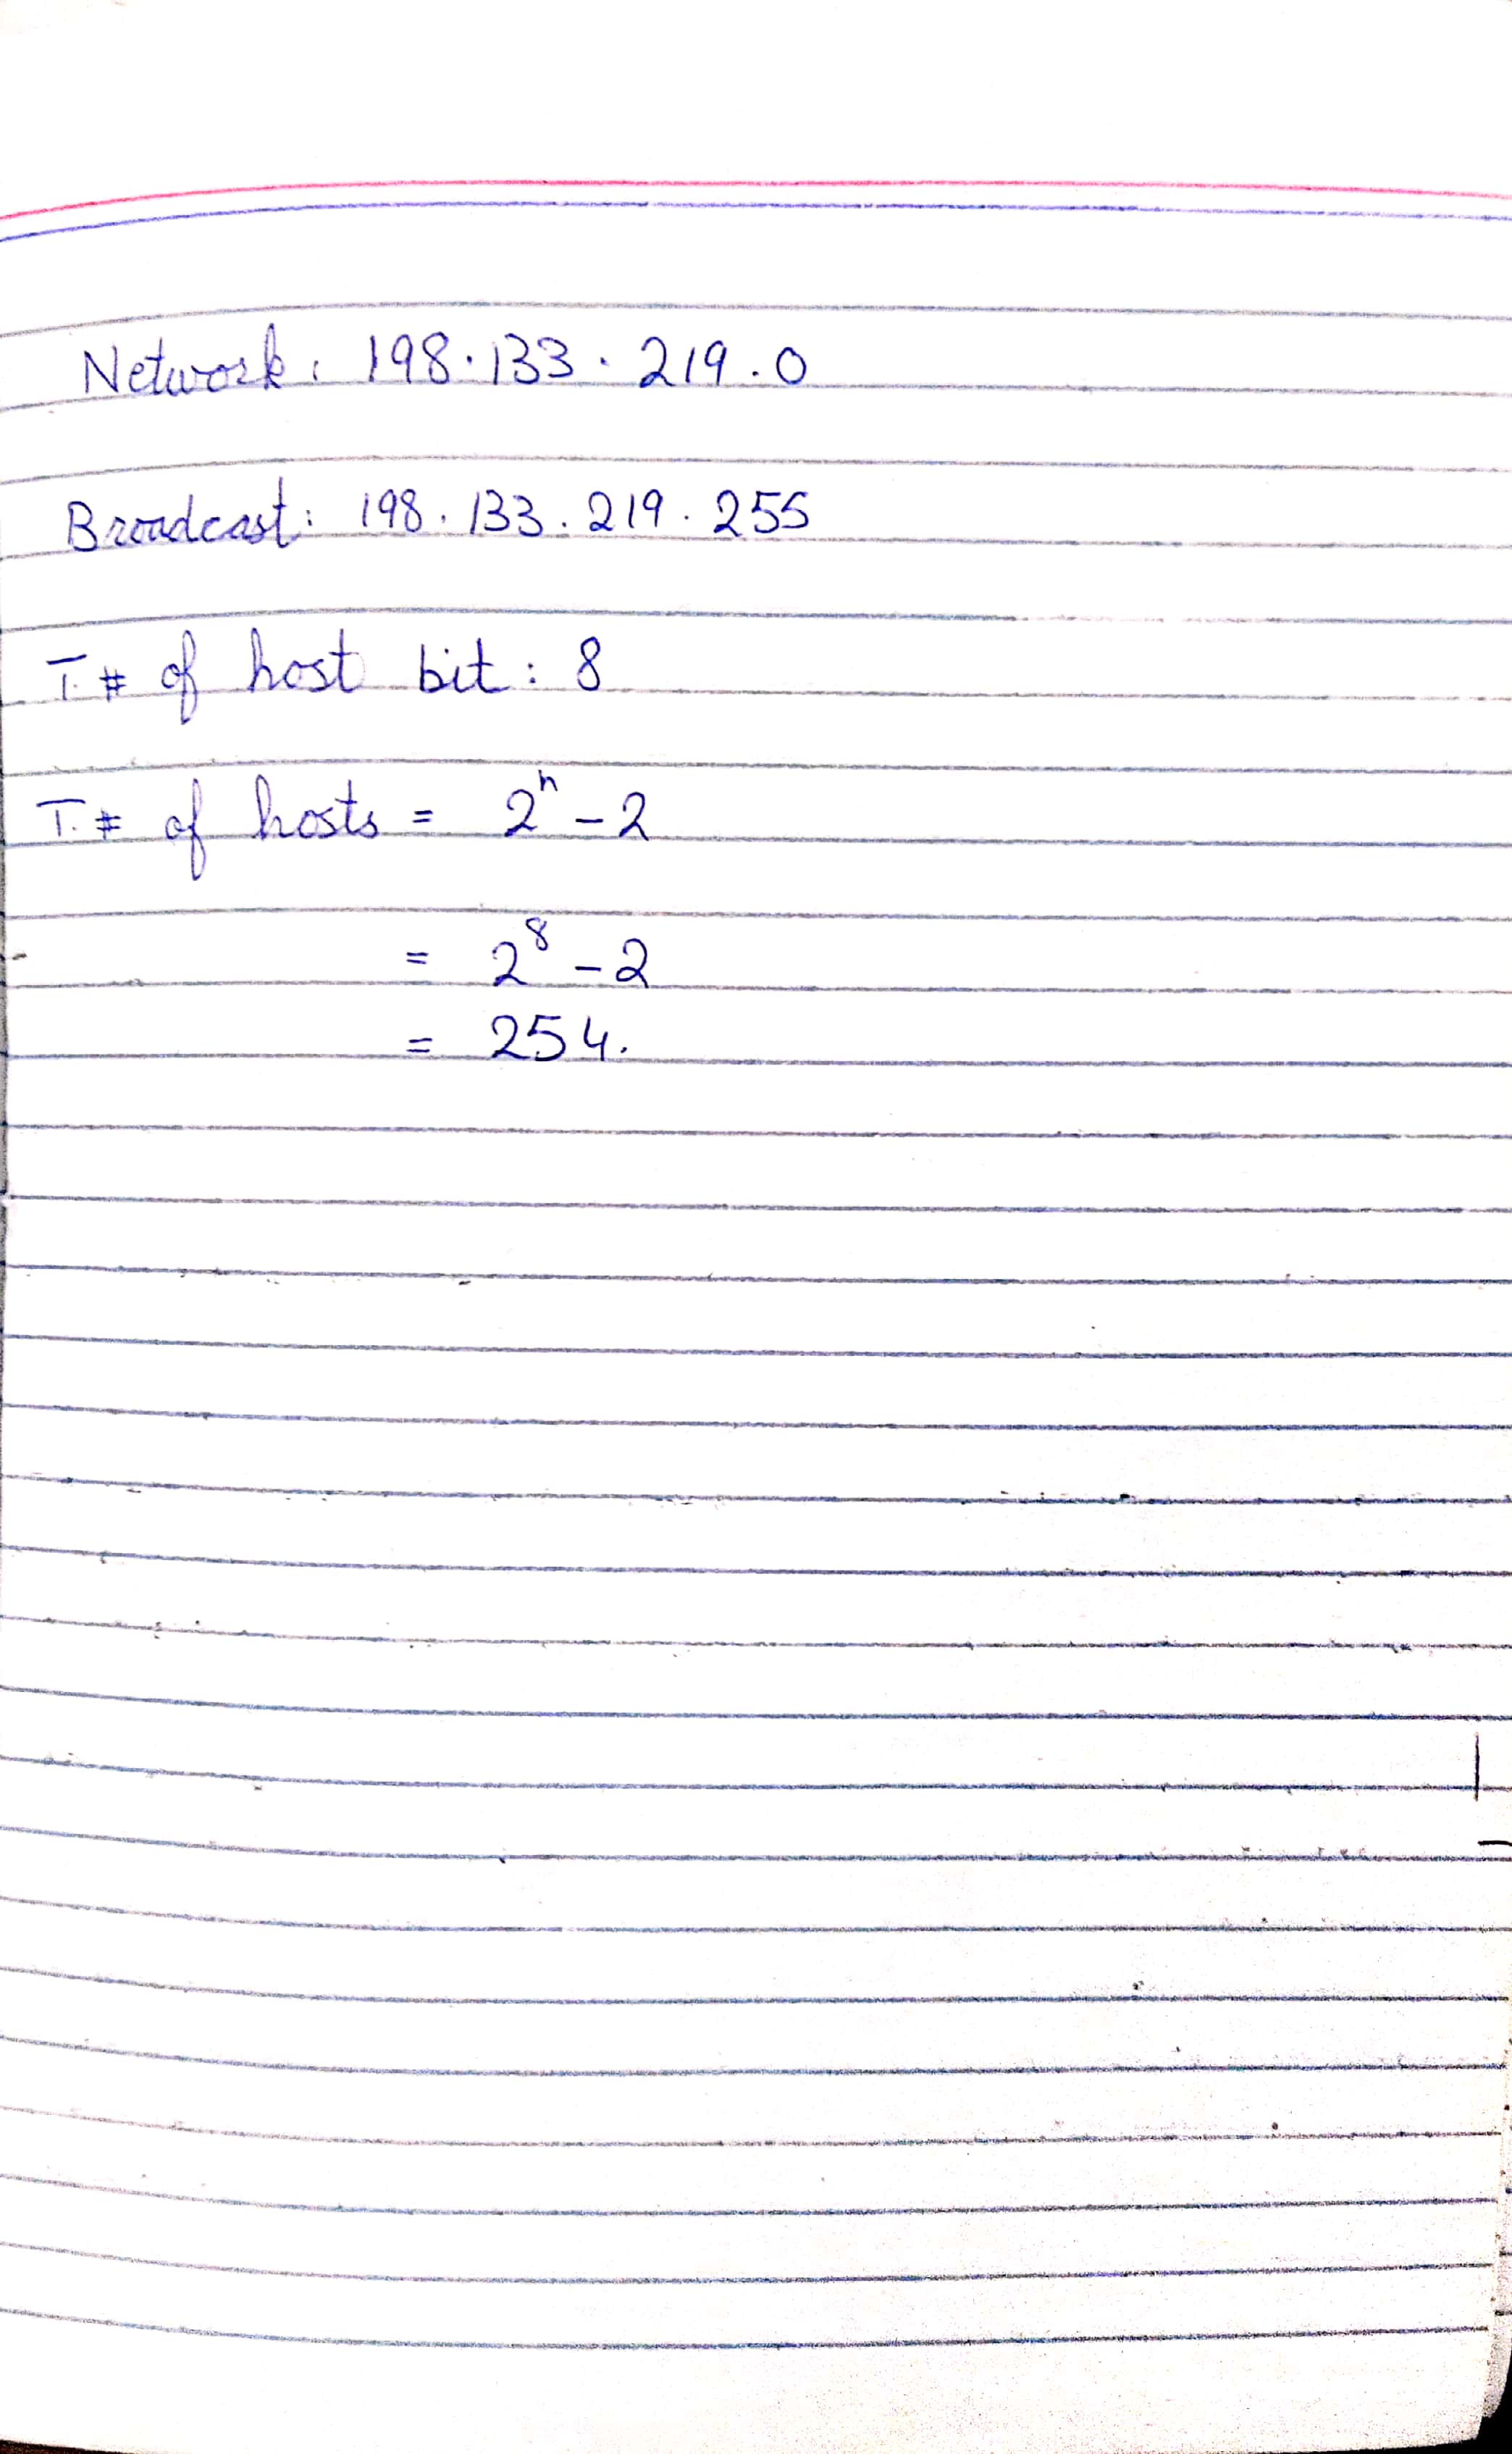 Network: 198.133.219.0
Broadcast: 198.133.219.255
T.# of host bit: 8
T.# of hosts = 2ʰ - 2
= 2⁸ - 2
= 254.